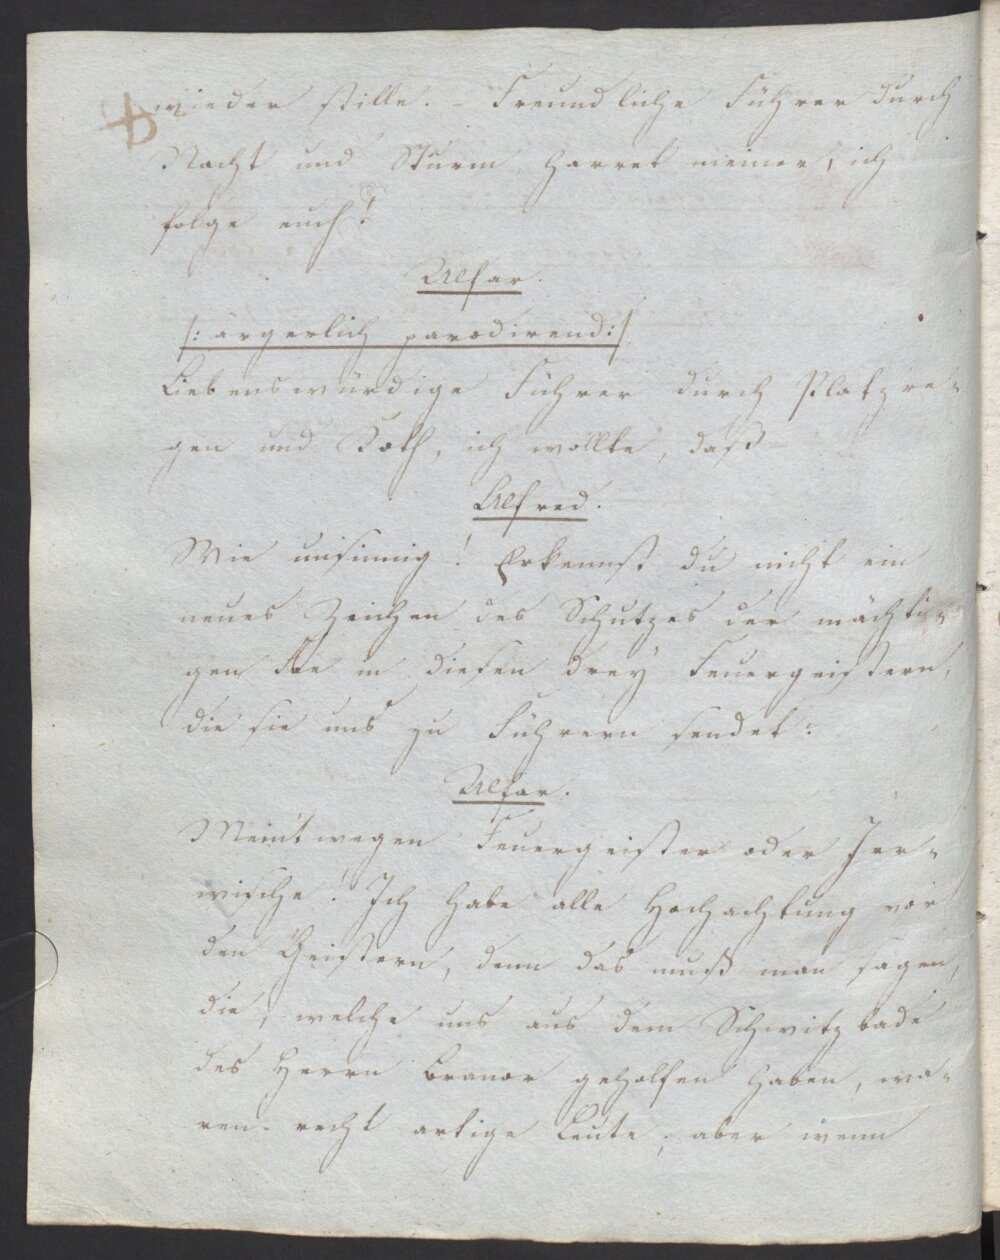 wieder stille. – Freundliche Führer durch
Nacht und Sturm, harret meiner, ich
folge euch!
Ulfar.
/: ärgerlich parodirend :/
Liebenswürdige Führer durch Platzre-
gen und Koth, ich wollte, daß –
Alfred.
Wie unsinnig! Erkennst du nicht ein
neues Zeichen des Schutzes der mächti-
gen Fee in diesen drey Feuergeistern,
die sie uns zu Führern sendet?
Ulfar.
Meint wegen Feuergeister oder Irr-
wische! Ich habe alle Hochachtung vor
den Geistern, denn das muß man sagen,
die, welche uns aus dem Schwitzbade
des Herrn Branor geholfen haben, wa-
ren recht artige Leute, aber wenn